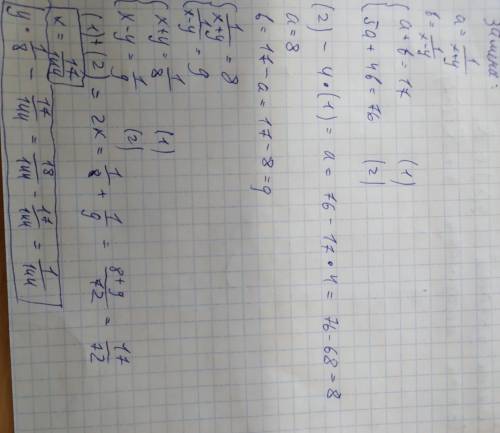 Замена:
a = 1/(x+y)
b = 1/(x-y)
{ a + b = 17 (1)
5a + 4b = 76 (2)
(2) - 4·(1) = a = 76 - 17·4 = 76 - 68 = 8
a = 8
b = 17 - a = 17 - 8 = 9
{ 1/(x+y) = 8
1/(x-y) = 9
{ x+y = 1/8 (1)
x-y = 1/9 (2)
(1)+(2) = 2x = 1/8 + 1/9 = (8+9)/72 = 17/72
x = 17/144
y = 1/8 - 17/144 = 18/144 - 17/144 = 1/144